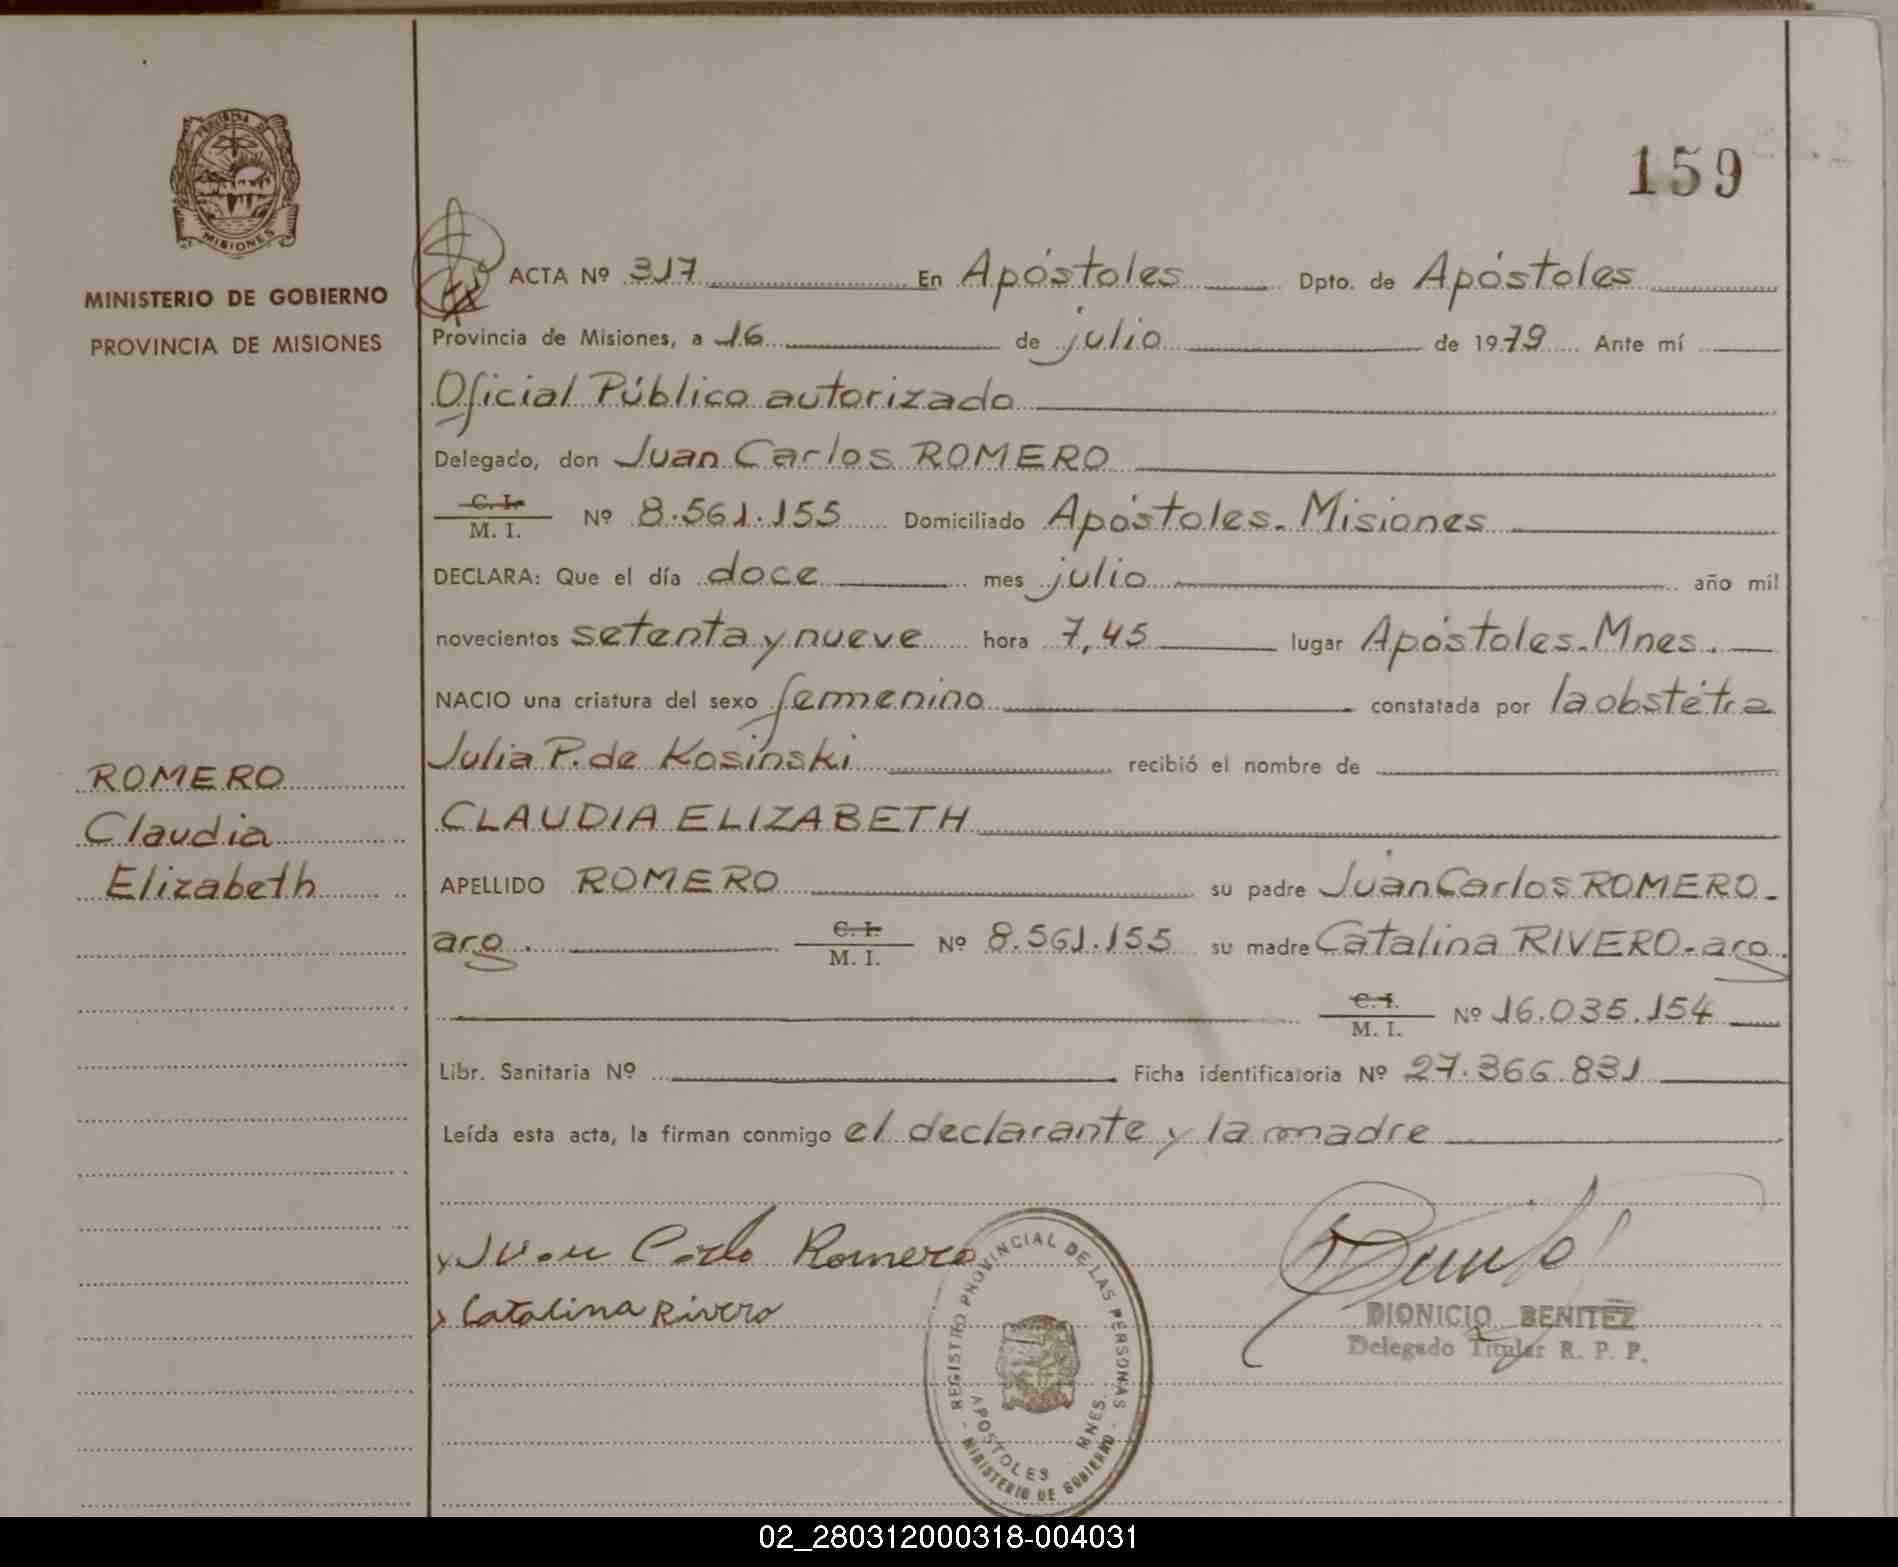 159
PROVINCIA DE
MISIONES
MINISTERIO DE GOBIERNO
PROVINCIA DE MISIONES
ACTA Nº 317 En Apóstoles Dpto. de Apóstoles
Provincia de Misiones, a 16 de julio de 1979 Ante mí
Oficial Público autorizado
Delegado, don Juan Carlos ROMERO
C. I.
M. I. Nº 8.561.155 Domiciliado Apóstoles. Misiones
DECLARA: Que el día doce mes julio año mil
novecientos setenta y nueve hora 7,45 lugar Apóstoles. Mnes.
NACIO una criatura del sexo femenino constatada por la obstétra
Julia P. de Kosinski recibió el nombre de
ROMERO
Claudia
Elizabeth
CLAUDIA ELIZABETH
APELLIDO ROMERO su padre Juan Carlos ROMERO-
arg. C. I.
M. I. Nº 8.561.155 su madre Catalina RIVERO-arg.
C. I.
M. I. Nº 16.035.154
Libr. Sanitaria Nº Ficha identificatoria Nº 27.366.831
Leída esta acta, la firman conmigo el declarante y la madre
Juan Carlo Romero
Catalina Rivero
REGISTRO PROVINCIAL DE LAS PERSONAS
APOSTOLES MNES.
MINISTERIO DE GOBIERNO
DIONICIO BENITEZ
Delegado Titular R. P. P.
02_280312000318-004031